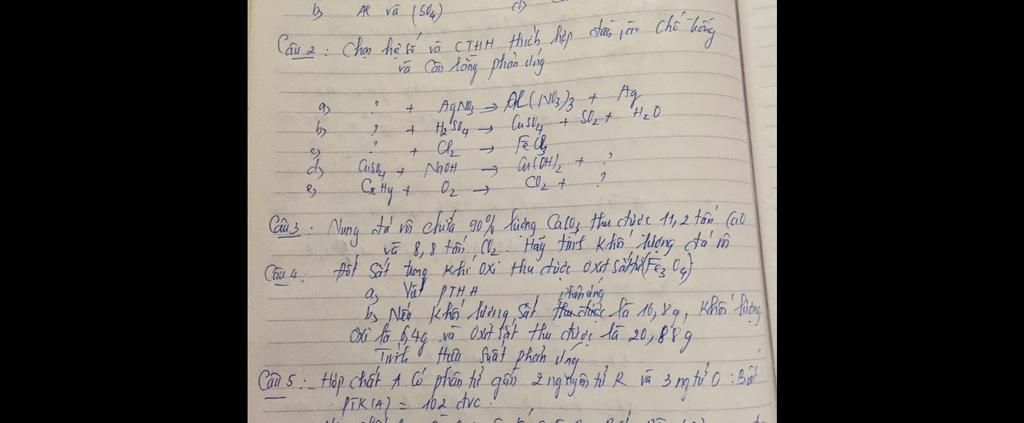 b) Al và (SO4) d)
Câu 2: Chọn hệ số và CTHH thích hợp đặt vào chỗ trống
và cân bằng phản ứng
a) ? + AgNO3 → Al(NO3)3 + Ag
b) ? + H2SO4 → CuSO4 + SO2 + H2O
c) ? + Cl2 → FeCl3
d) CuSO4 + NaOH → Cu(OH)2 + ?
e) CxHy + O2 → CO2 + ?
Câu 3: Nung đá vôi chứa 90% lượng CaCO3 thu được 11,2 tấn CaO
và 8,8 tấn CO2. Hãy tính khối lượng đá vôi
Câu 4. Đốt sắt trong khí oxi thu được oxit sắt từ (Fe3O4)
a, Viết PTHH
phản ứng
b, Nếu khối lượng sắt thu được là 16,8g, khối lượng
oxi là 6,4g và oxit sắt thu được là 20,88g
Tính hiệu suất phản ứng
Câu 5: Hợp chất A có phân tử gồm 2 nguyên tử R và 3 ng tử O. Biết
PTK(A) = 102 đvc.